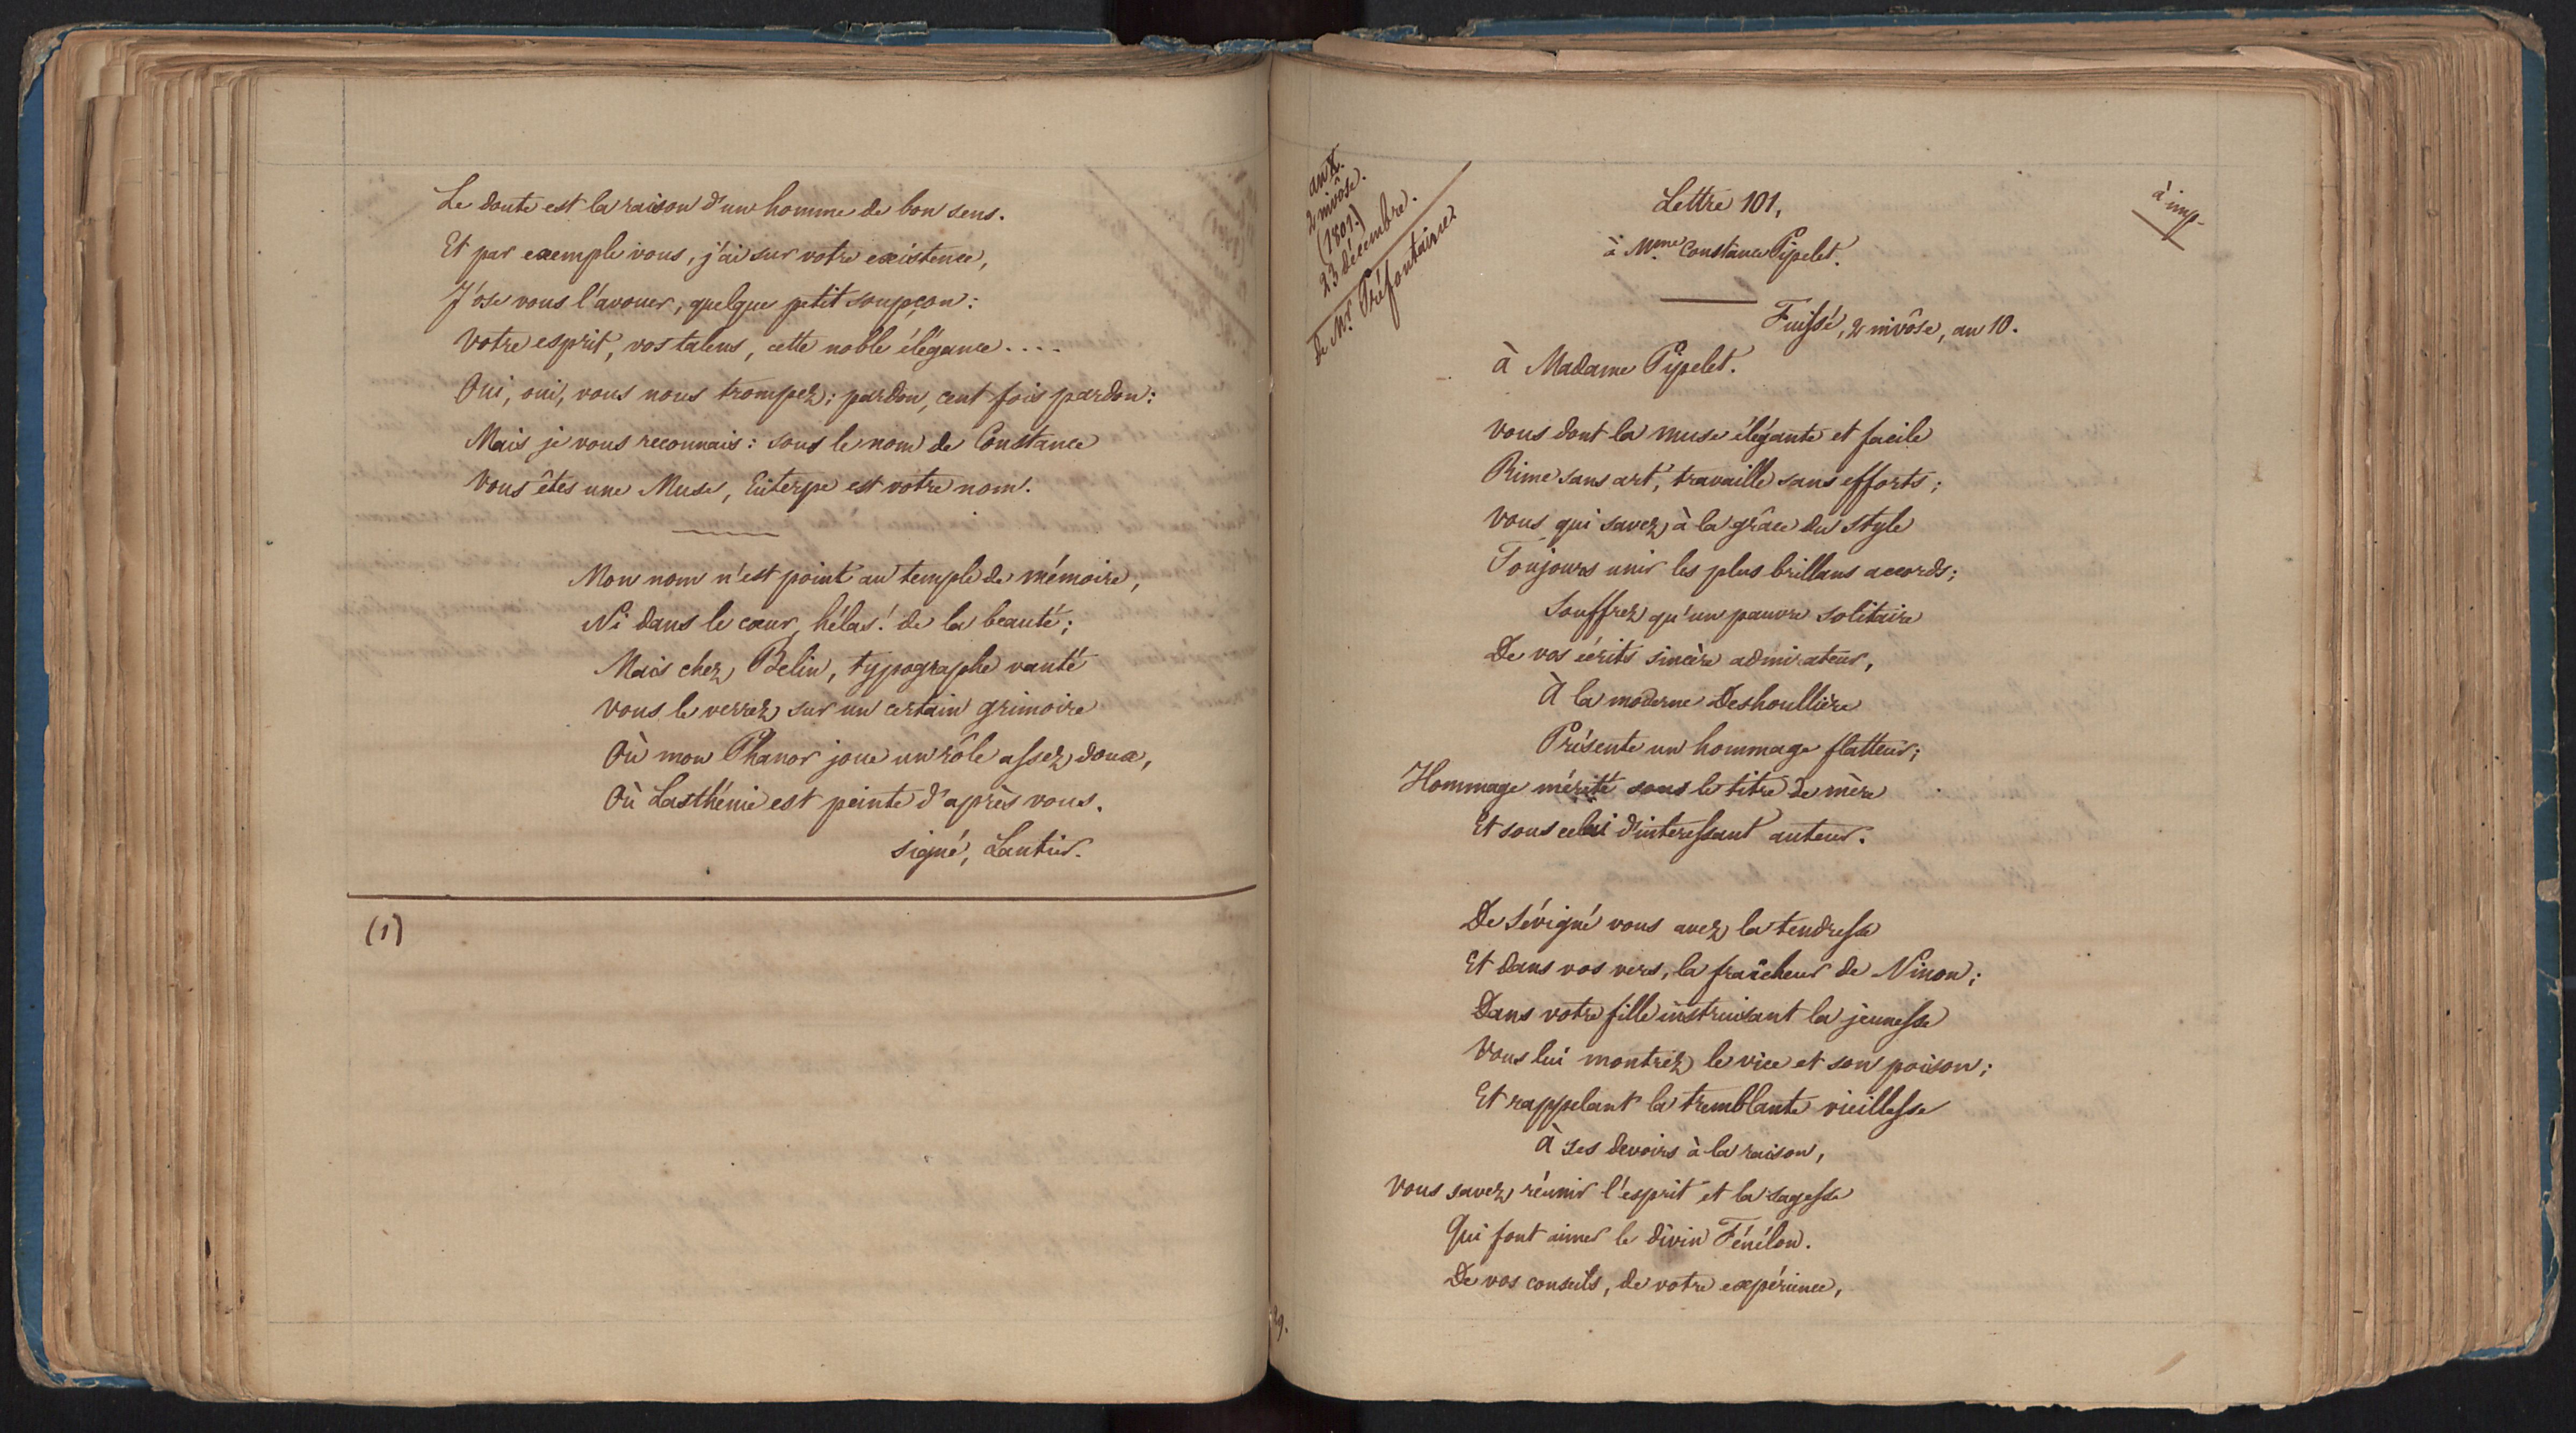 Le doute est la raison d'un homme de bon sens.
Et par exemple vous, j'ai sur votre existence,
J'ose vous l'avouer, quelque petit soupçon:
Votre esprit, vos talens, cette noble élégance....
Oui, oui, vous nous trompez; pardon, cent fois pardon:
Mais je vous reconnais: sous le nom de Constance
Vous êtes une Muse, Euterpe est votre nom.
Mon nom n'est point au temple de mémoire,
Ni dans le cœur, hélas! de la beauté;
Mais chez Belin, typographe vanté
Vous le verrez sur un certain grimoire
Où mon Phanor joue un rôle assez doux,
Où Lasthénie est peinte d'après vous.
signé, Lantier.
(1)
an X.
2 nivôse.
(1801.)
23 décembre.
de Mr. Préfontaine
Lettre 101,
à imp.
à Mme. Constance Pipelet.
Fuissé, 2 nivôse, an 10.
à Madame Pipelet.
Vous dont la muse élégante et facile
Rime sans art, travaille sans efforts;
Vous qui savez à la grâce du style
Toujours unir les plus brillans accords;
Souffrez qu'un pauvre solitaire
De vos écrits sincère admirateur,
À la moderne Deshoullière
Présente un hommage flatteur;
Hommage mérité sous le titre de mère
Et sous celui d'interessant auteur.
De Sévigné vous avez la tendresse
Et dans vos vers, la fraîcheur de Ninon;
Dans votre fille instruisant la jeunesse
Vous lui montrez le vice et son poison;
Et rappelant la tremblante vieillesse
À ses devoirs à la raison,
Vous savez réunir l'esprit et la sagesse
Qui font aimer le divin Fénélon.
De vos conseils, de votre expérience,